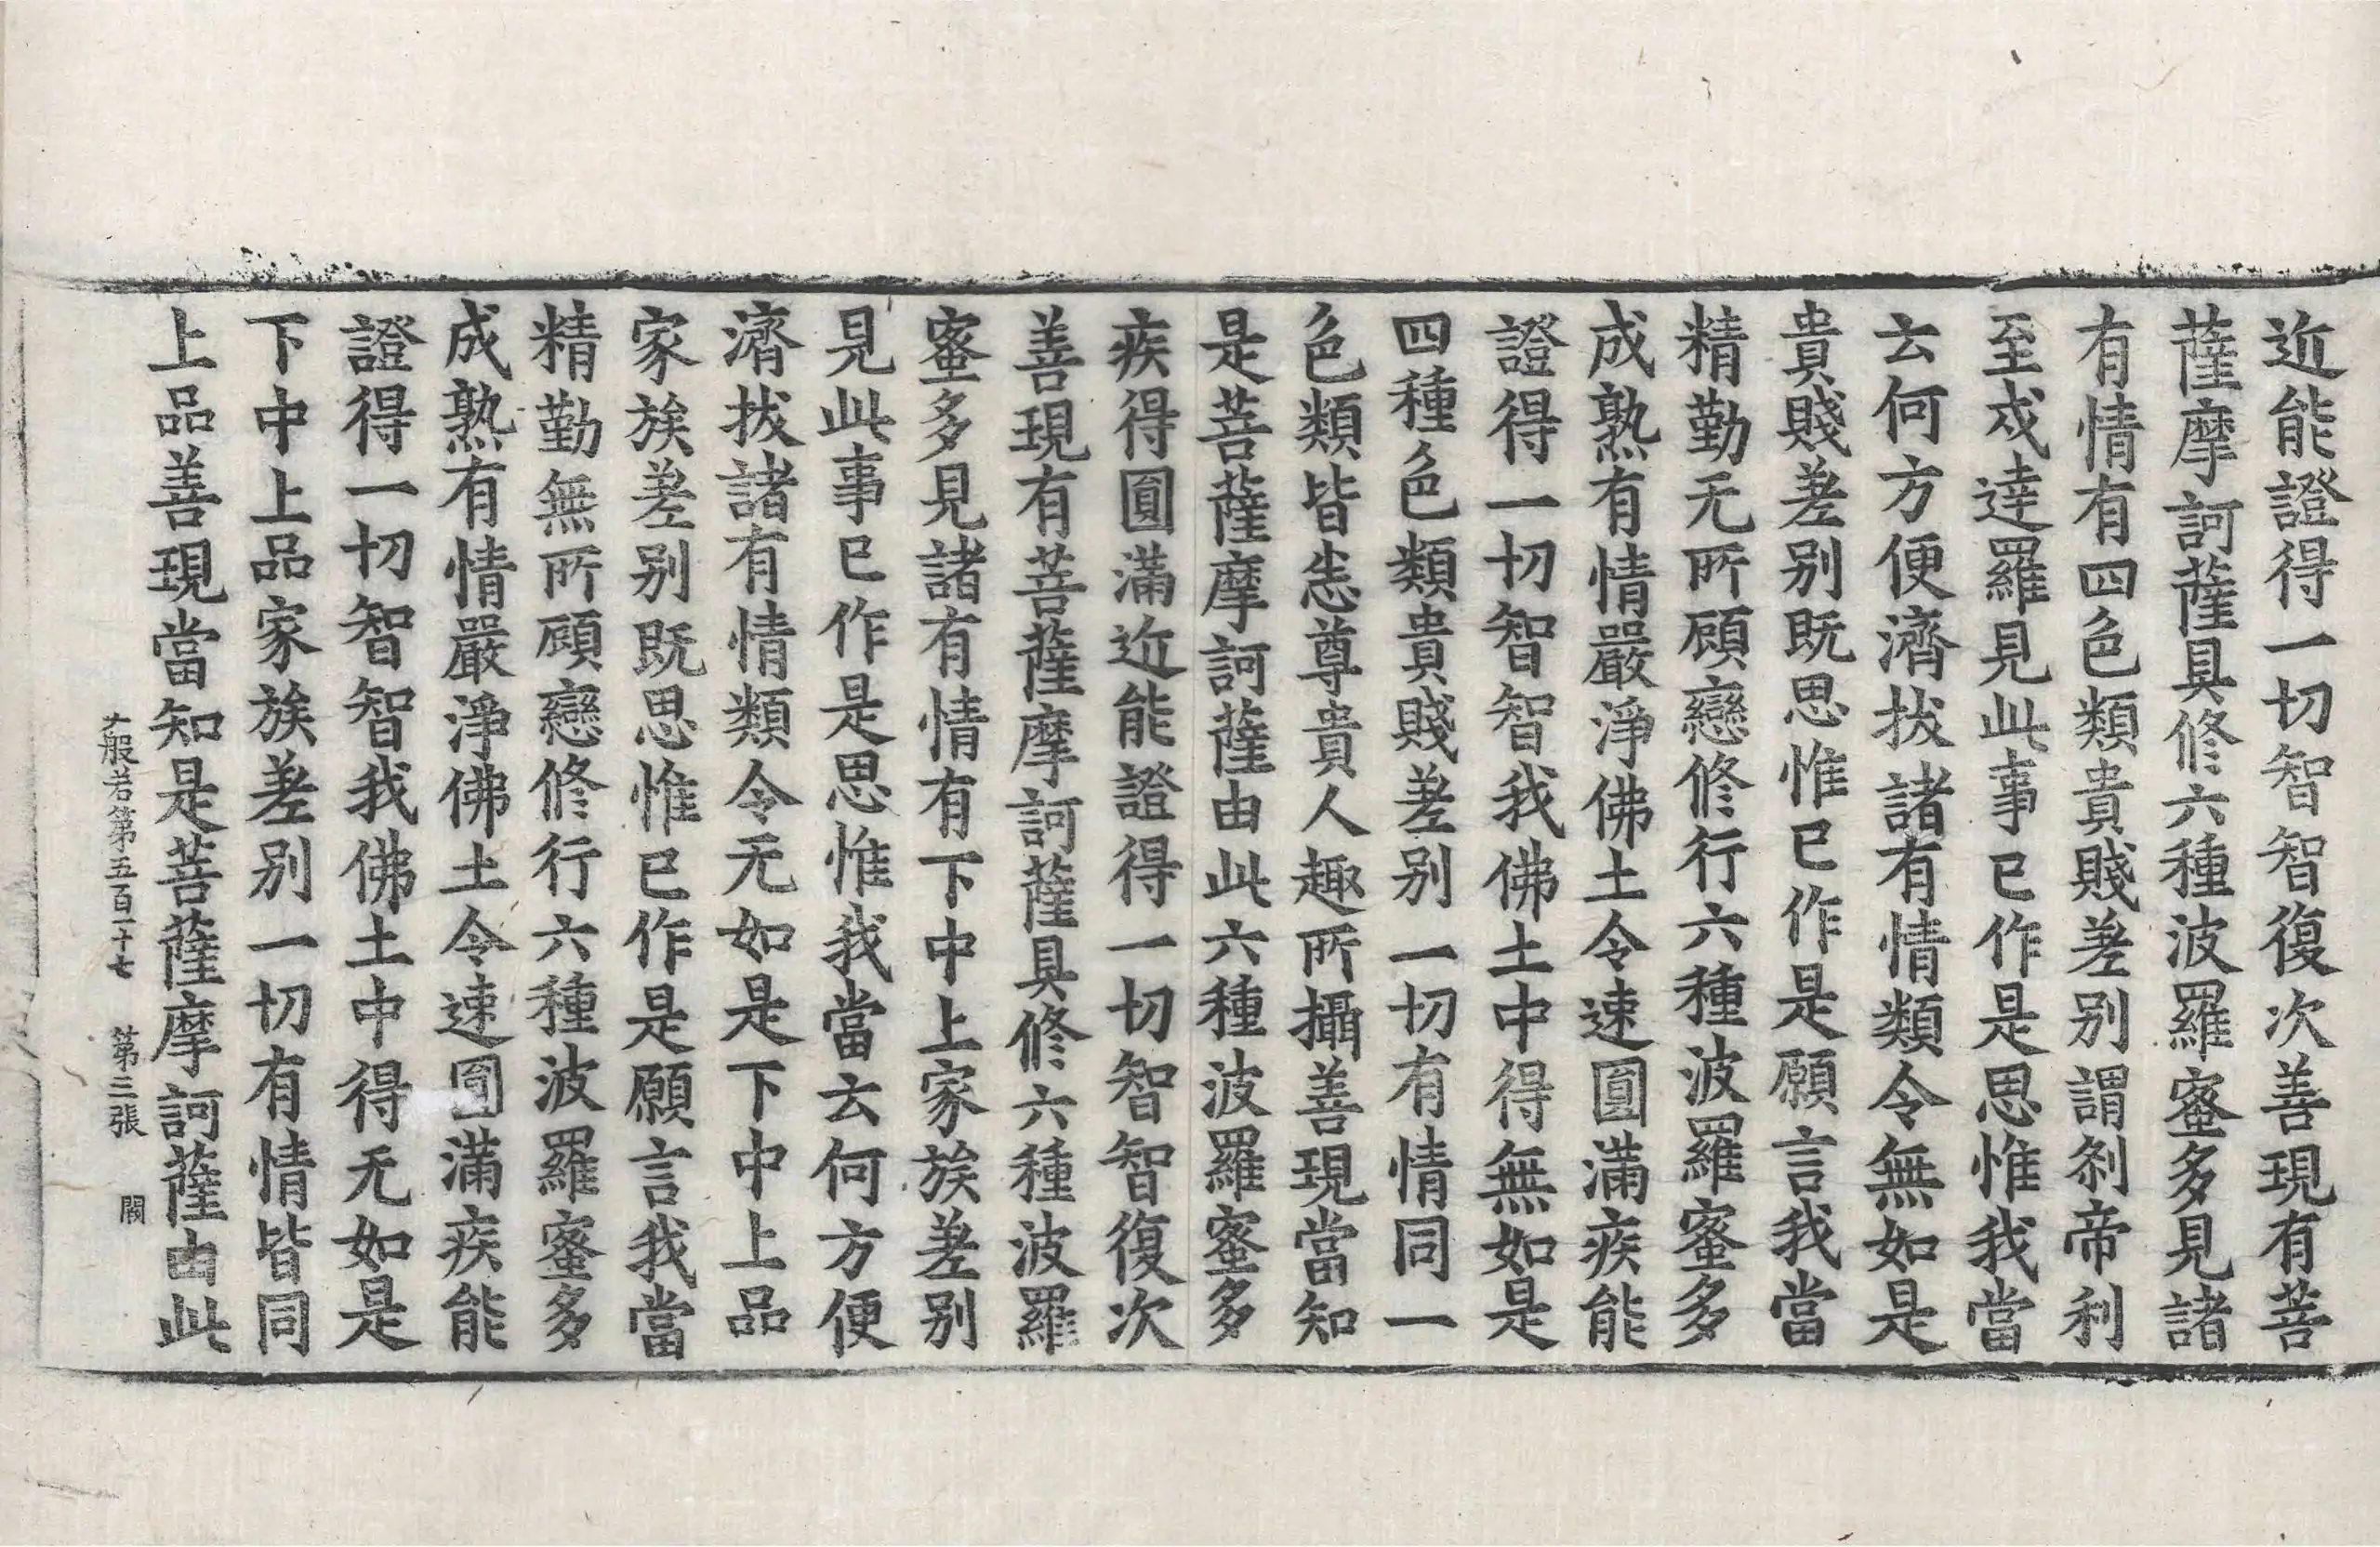 近能證得一切智智復次善現有菩
薩摩訶薩具修六種波羅蜜多見諸
有情有四色類貴賤差别謂剎帝利
至戍達羅見此事已作是思惟我當
云何方便濟拔諸有情類令無如是
貴賤差别既思惟已作是願言我當
精勤无所顧戀修行六種波羅蜜多
成熟有情嚴淨佛土令速圓滿疾能
證得一切智智我佛土中得無如是
四種色類貴賤差别一切有情同一
色類皆悉尊貴人趣所攝善現當知
是菩薩摩訶薩由此六種波羅蜜多
疾得圓滿近能證得一切智智復次
善現有菩薩摩訶薩具修六種波羅
蜜多見諸有情有下中上家族差别
見此事已作是思惟我當云何方便
濟拔諸有情類令无如是下中上品
家族差别既思惟已作是願言我當
精勤無所顧戀修行六種波羅蜜多
成熟有情嚴淨佛土令速圓滿疾能
證得一切智智我佛土中得无如是
下中上品家族差别一切有情皆同
上品善現當知是菩薩摩訶薩由此
大般若第五百一十七 第三張 闕